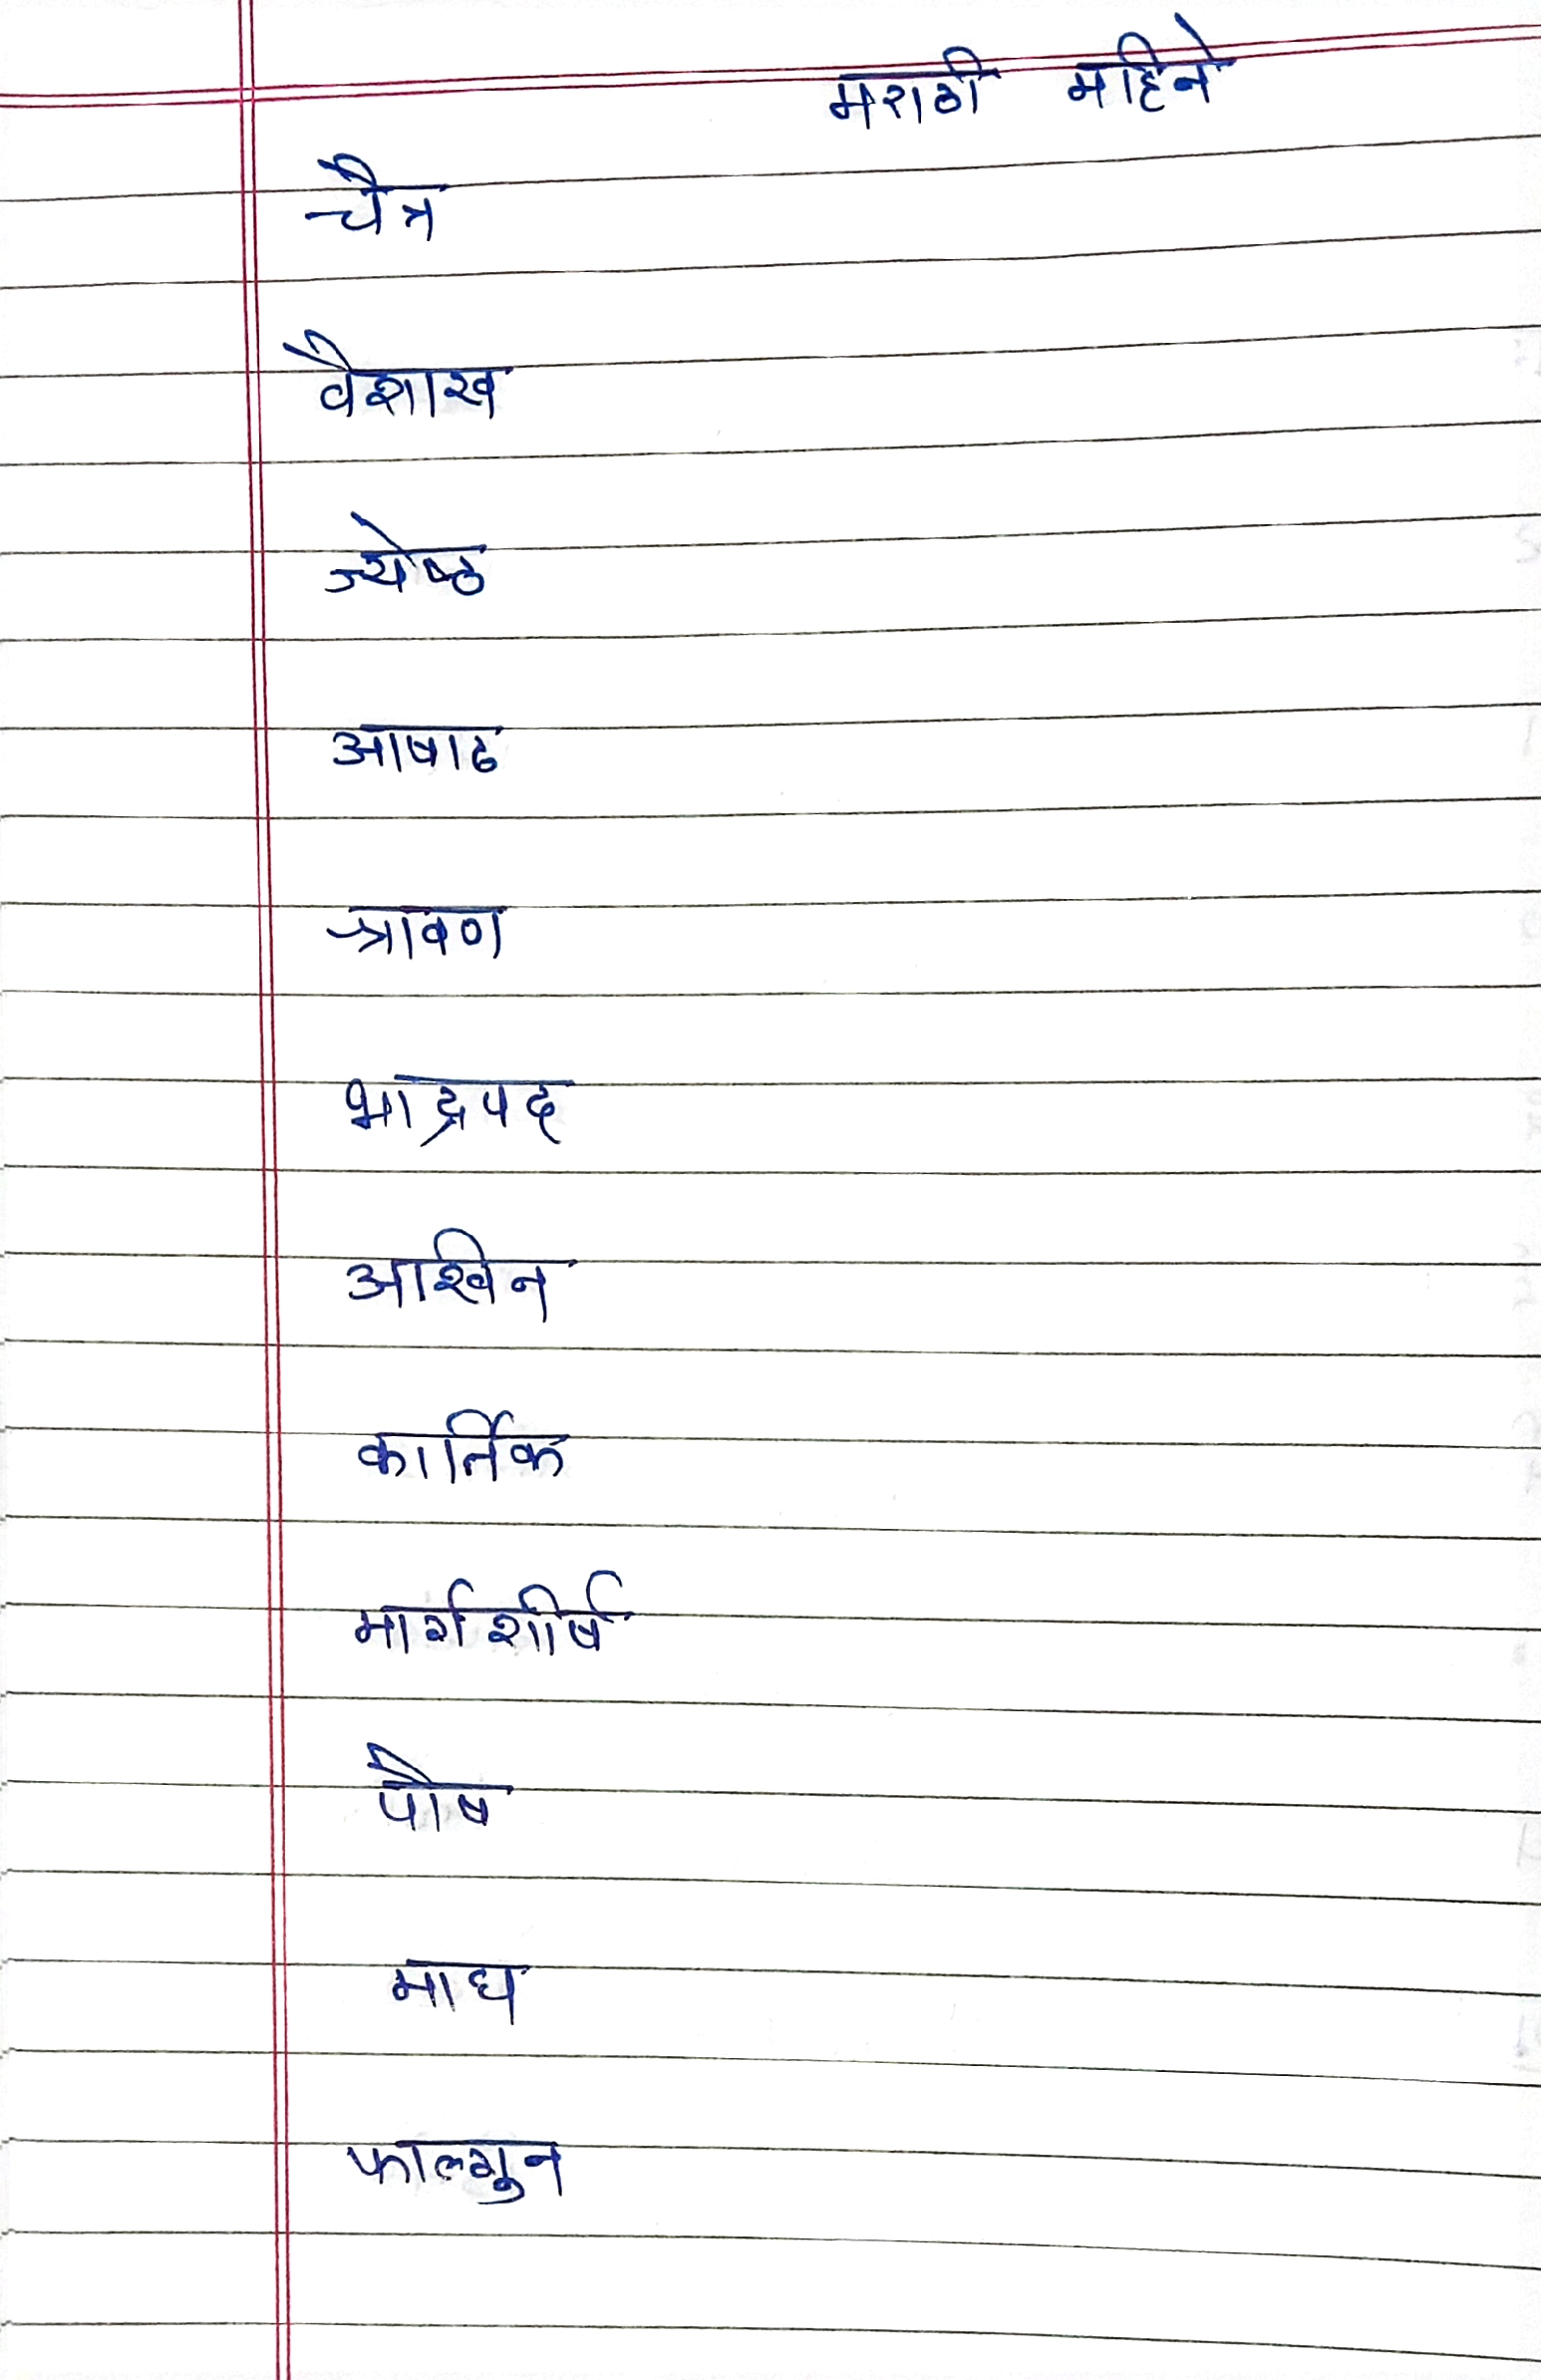 मराठी महिने
चैत्र
वैशाख
ज्येष्ठ
आषाढ
श्रावण
भाद्रपद
आश्विन
कार्तिक
मार्गशीर्ष
पौष
माघ
फाल्गुन